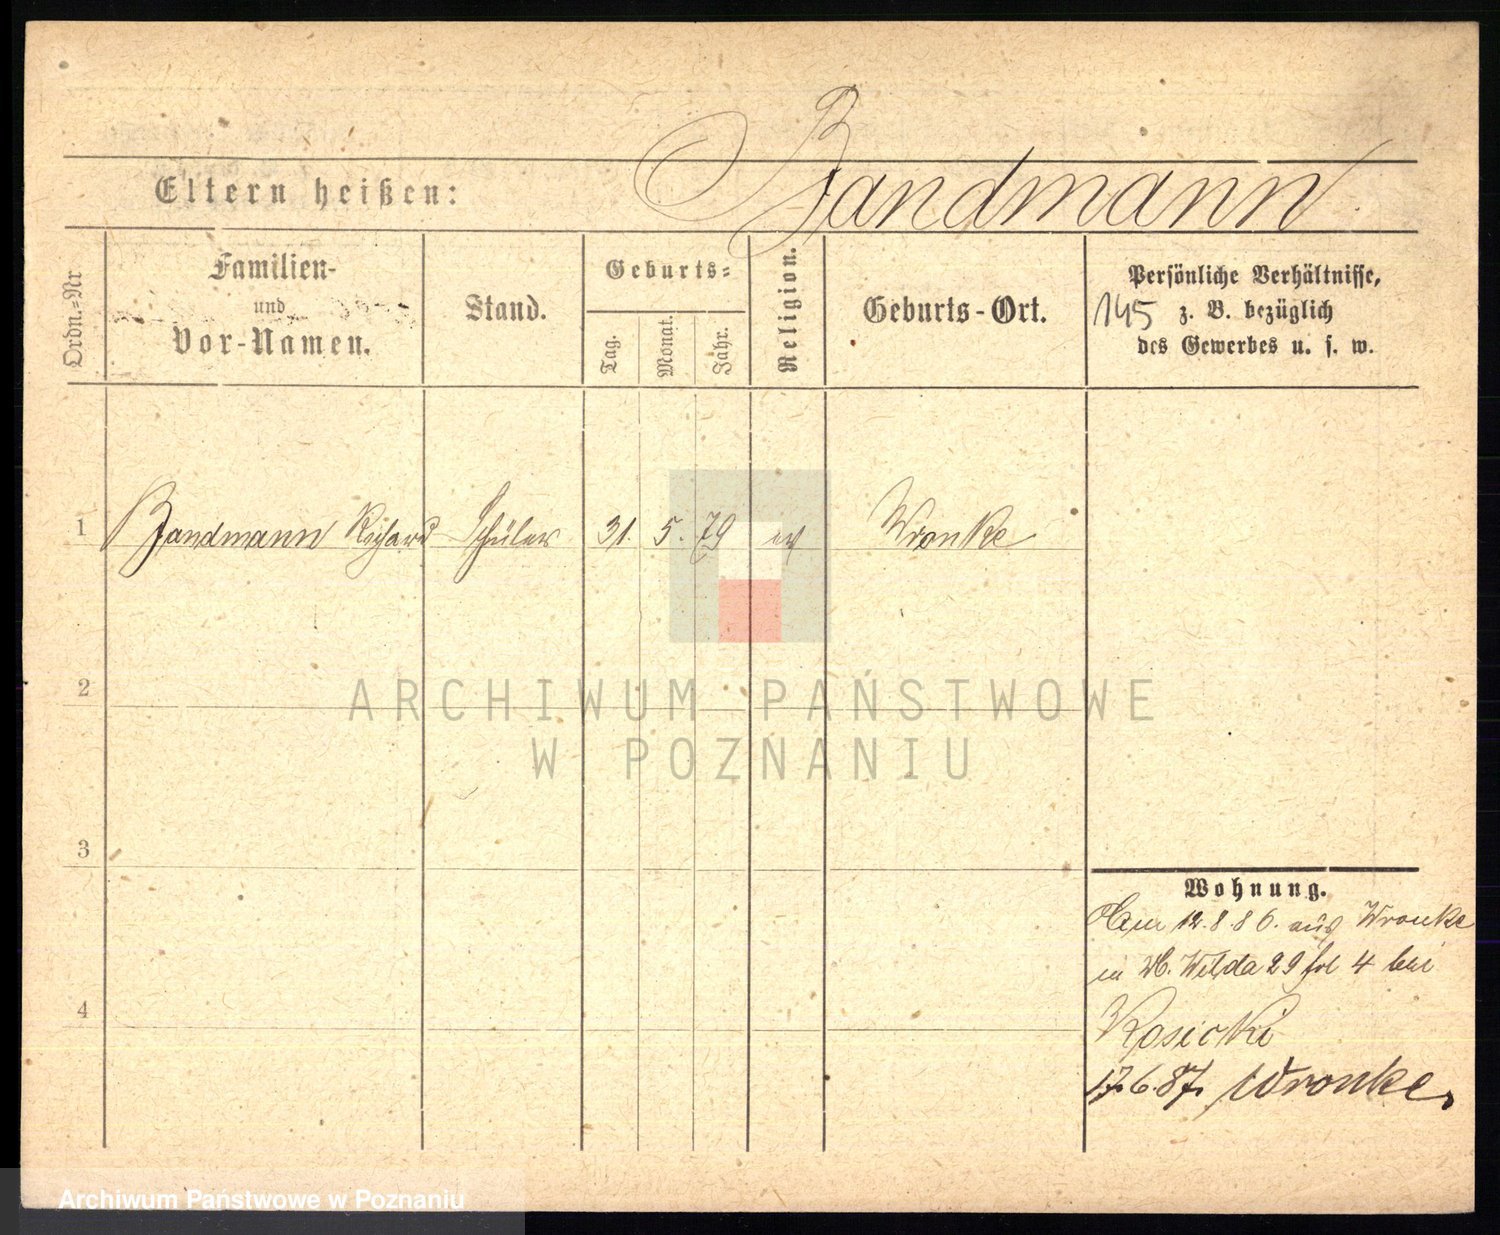 Bandmann
Eltern heißen:
Ordn.-Nr
Familien-
und
Vor-Namen.
Stand.
Geburts-
Tag.
Monat.
Jahr.
Religion.
Geburts-Ort.
Persönliche Verhältnisse,
145 z. B. bezüglich
des Gewerbes u. s. w.
1 Bandmann Richard Schüler 31. 5. 79 ev Wronke
2
3
4
Wohnung.
Am 12.8.86. aus Wronke
in W. Wilda 29 fol 4 bei
Kosicki
17.6.87. Wronke.
ARCHIWUM PAŃSTWOWE
W POZNANIU
Archiwum Państwowe w Poznaniu